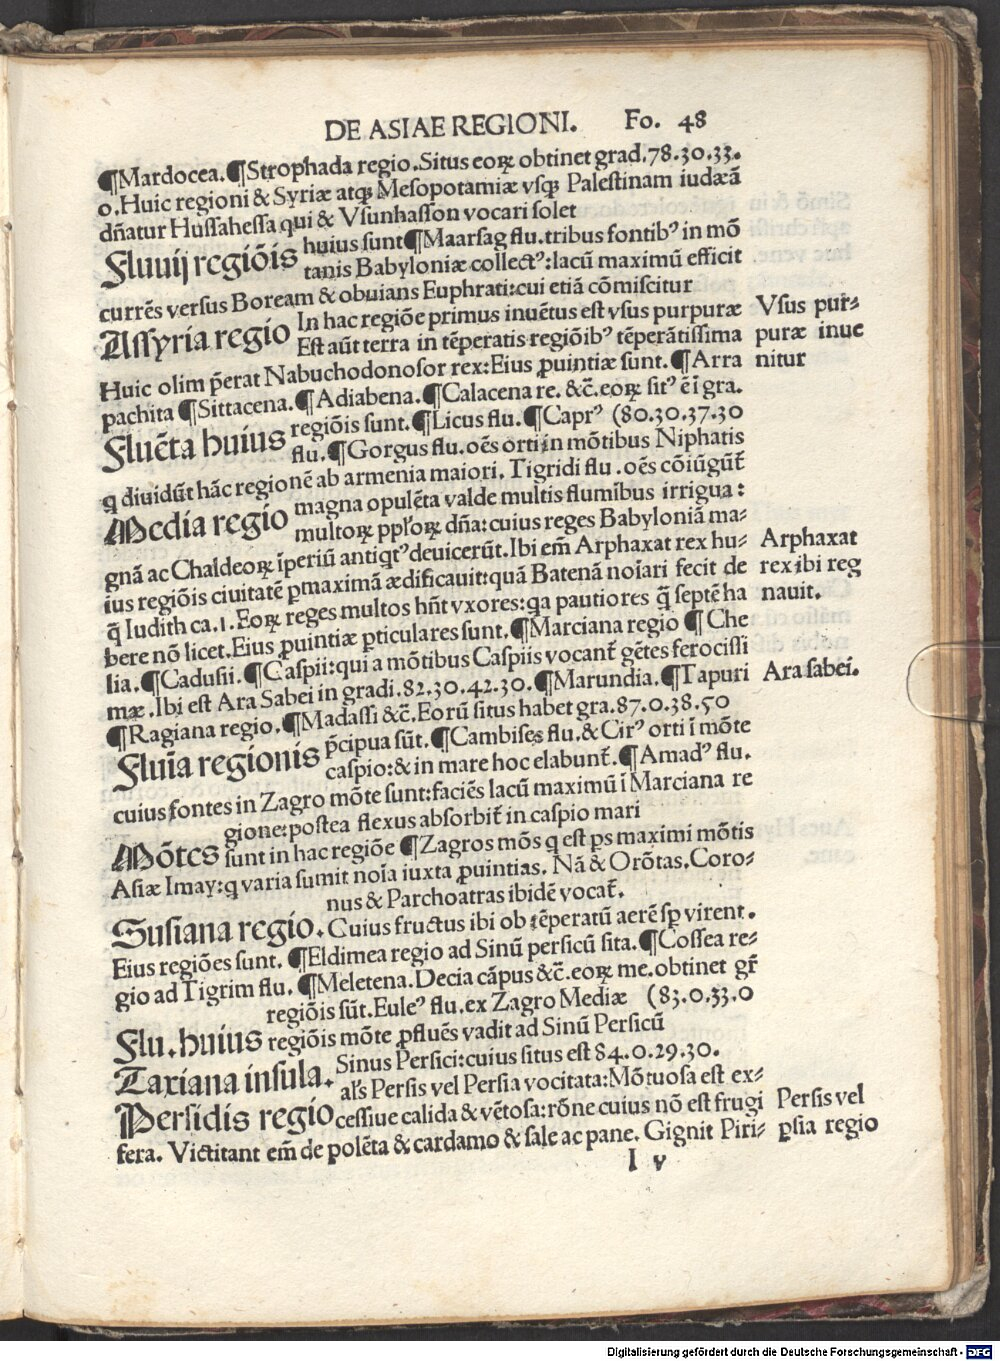 DE ASIAE REGIONI. Fo. 48
¶Mardocea. ¶Strophada regio. Situs eoꝝ obtinet grad. 78.30.33.
0. Huic regioni & Syriæ atqꝫ Mesopotamiæ vsqꝫ Palestinam iudæā
dñatur Hussahessa qui & Vsunhasson vocari solet
Fluuij regiōis huius sunt ¶Maarsag flu. tribus fontibꝰ in mō
tanis Babyloniæ collectꝰ: lacū maximū efficit
currēs versus Boream & obuians Euphrati: cui etiā cōmiscitur
Assyria regio In hac regiōe primus inuētus est vsus purpuræ
Est aūt terra in tēperatis regiōibꝰ tēperātissima
Vsus pur-
puræ inue
nitur
Huic olim p̄erat Nabuchodonosor rex: Eius ꝓuintiæ sunt. ¶Arra
pachita ¶Sittacena. ¶Adiabena. ¶Calacena re. &c̄. eoꝝ sitꝰ ē ī gra.
Fluēta huius regiōis sunt. ¶Licus flu. ¶Caprꝰ (80.30.37.30
flu. ¶Gorgus flu. oēs orti in mōtibus Niphatis
q diuidūt hāc regionē ab armenia maiori. Tigridi flu. oēs cōiūgūt̄
Media regio magna opulēta valde multis flumībus irrigua:
multoꝝ ppl'oꝝ dña: cuius reges Babyloniā ma-
gnā ac Chaldeoꝝ īperiū antiqtꝰ deuicerūt. Ibi em̄ Arphaxat rex hu-
ius regiōis ciuitatē ꝑmaximā ædificauit: quā Batenā noīari fecit de
Arphaxat
rex ibi reg
nauit.
q̄ Iudith ca. 1. Eoꝝ reges multos hn̄t vxores: qa pautiores q̄ septē ha
bere nō licet. Eius ꝓuintiæ ꝑticulares sunt. ¶Marciana regio ¶Che
lia. ¶Cadusii. ¶Caspii: qui a mōtibus Caspiis vocant̄ gētes ferocissi
mæ. Ibi est Ara Sabei in gradi. 82.30.42.30. ¶Marundia. ¶Tapuri
Ara sabei.
¶Ragiana regio. ¶Madassi &c̄. Eorū situs habet gra. 87.0.38.50
Fluīa regionis p̄cipua sūt. ¶Cambises flu. & Cirꝰ orti ī mōte
caspio: & in mare hoc elabunt̄. ¶Amadꝰ flu.
cuius fontes in Zagro mōte sunt: faciēs lacū maximū ī Marciana re
gione: postea flexus absorbit̄ in caspio mari
Mōtes sunt in hac regiōe ¶Zagros mōs q est ps maximi mōtis
Asiæ Imay: q varia sumit noīa iuxta ꝓuintias. Nā & Orōtas. Coro-
nus & Parchoatras ibidē vocat̄.
Susiana regio. Cuius fructus ibi ob tēperatū aerē sp̄ virent.
Eius regiōes sunt. ¶Eldimea regio ad Sinū persicū sita. ¶Cossea re-
gio ad Tigrim flu. ¶Meletena. Decia cāpus &c̄. eoꝝ me. obtinet gr̄
regiōis sūt. Euleꝰ flu. ex Zagro Mediæ (83.0.33.0
Flu. huius regiōis mōte ꝓfluēs vadit ad Sinū Persicū
Taxiana insula. Sinus Persici: cuius situs est 84.0.29.30.
Persidis regio al's Persis vel Persia vocitata: Mōtuosa est ex-
cessiue calida & vētosa: rōne cuius nō est frugi
fera. Victitant em̄ de polēta & cardamo & sale ac pane. Gignit Piri-
Persis vel
ꝑsia regio
I v
Digitalisierung gefördert durch die Deutsche Forschungsgemeinschaft - DFG